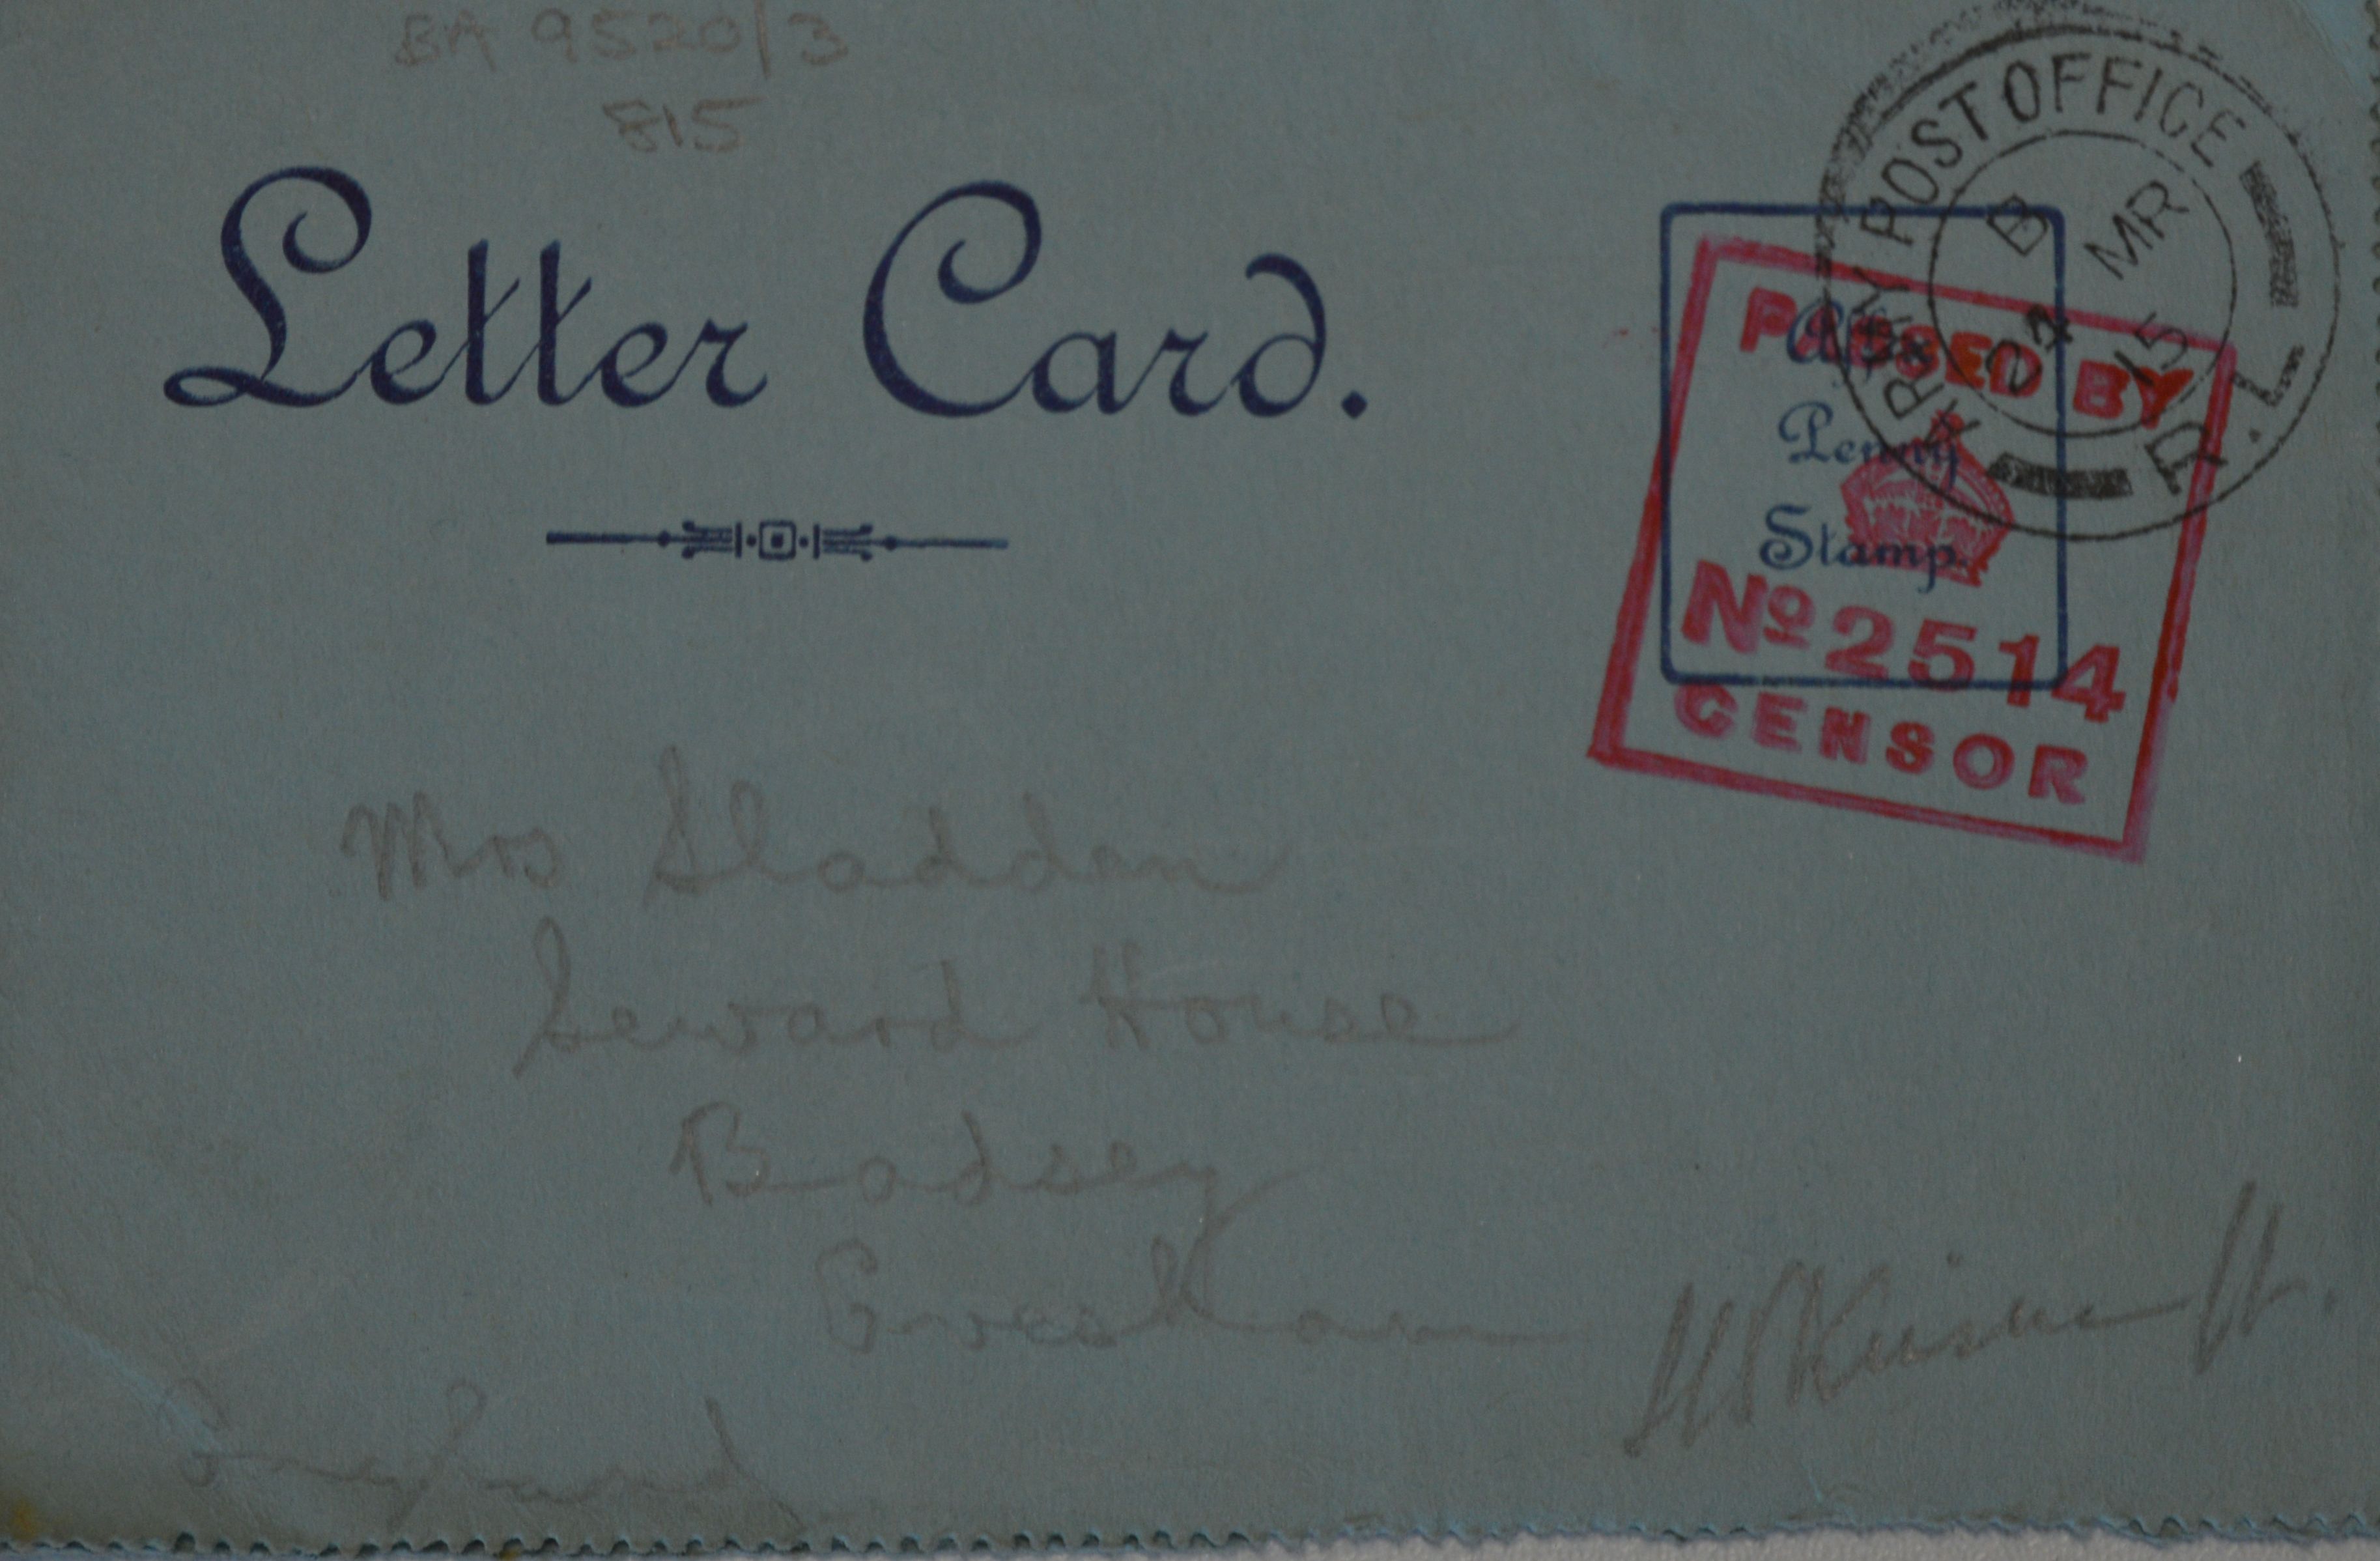 BA 9520/3
815
Letter Card.
ARMY POST OFFICE
B
MR
24
15
D. 1.
PASSED BY
Penny
Stamp.
No 2514
CENSOR
Mrs Sladden
Seward House
Badsey
Evesham
England